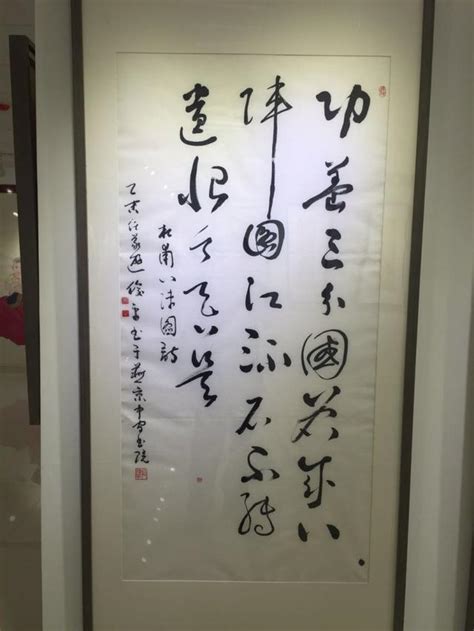 功蓋三分國名成八
陣圖江流石不轉
遺恨失吞吳
杜甫八陣圖詩
書于燕京